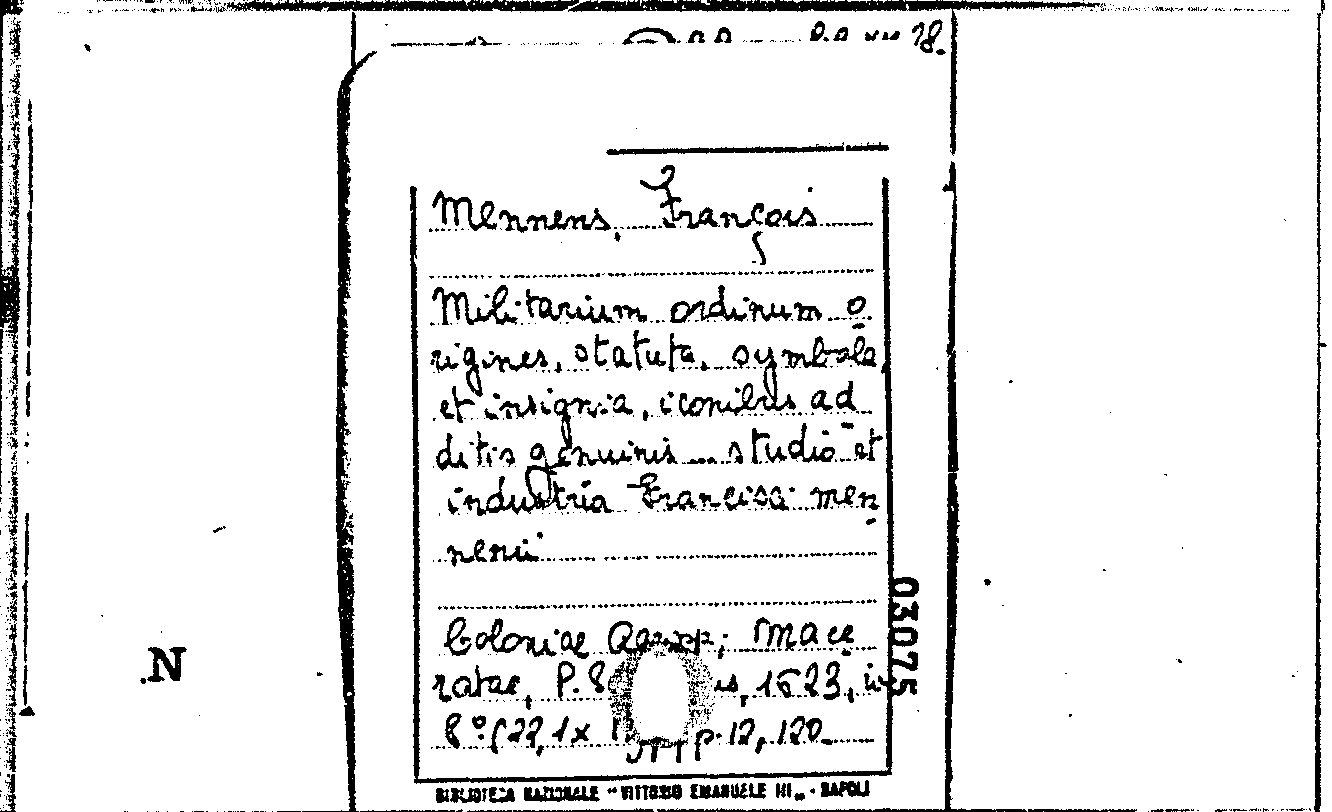 18.
Mennens, François
Militarium ordinum o
rigines, statuta, symbola
et insignia, iconibus ad
ditis genuinis ... studio et
industria Francisci Men
nenii
Coloniae Agripp; Mace
ratae, P. 1623, in
8° (22,1x p. 12, 120.
03075
N
BIBLIOTECA NAZIONALE "VITTORIO EMANUELE III" - NAPOLI